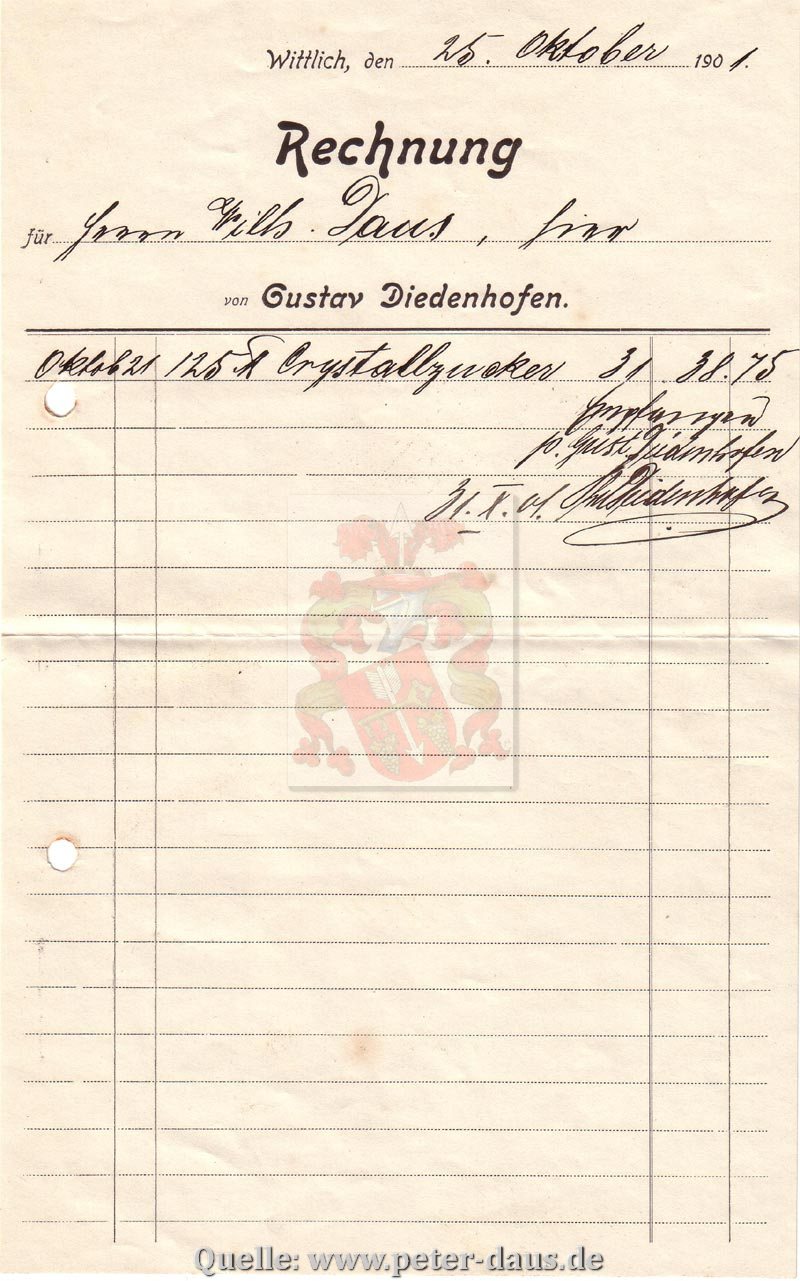 Wittlich, den 25. Oktober 1901.
Rechnung
für Herrn Wilh. Daus, hier
von Gustav Diedenhofen.
Oktob 21 125 ℔ Crystallzucker 31 38.75
Empfangen
p. Gust. Diedenhofen
31. X. 01. Diedenhofen
Quelle: www.peter-daus.de